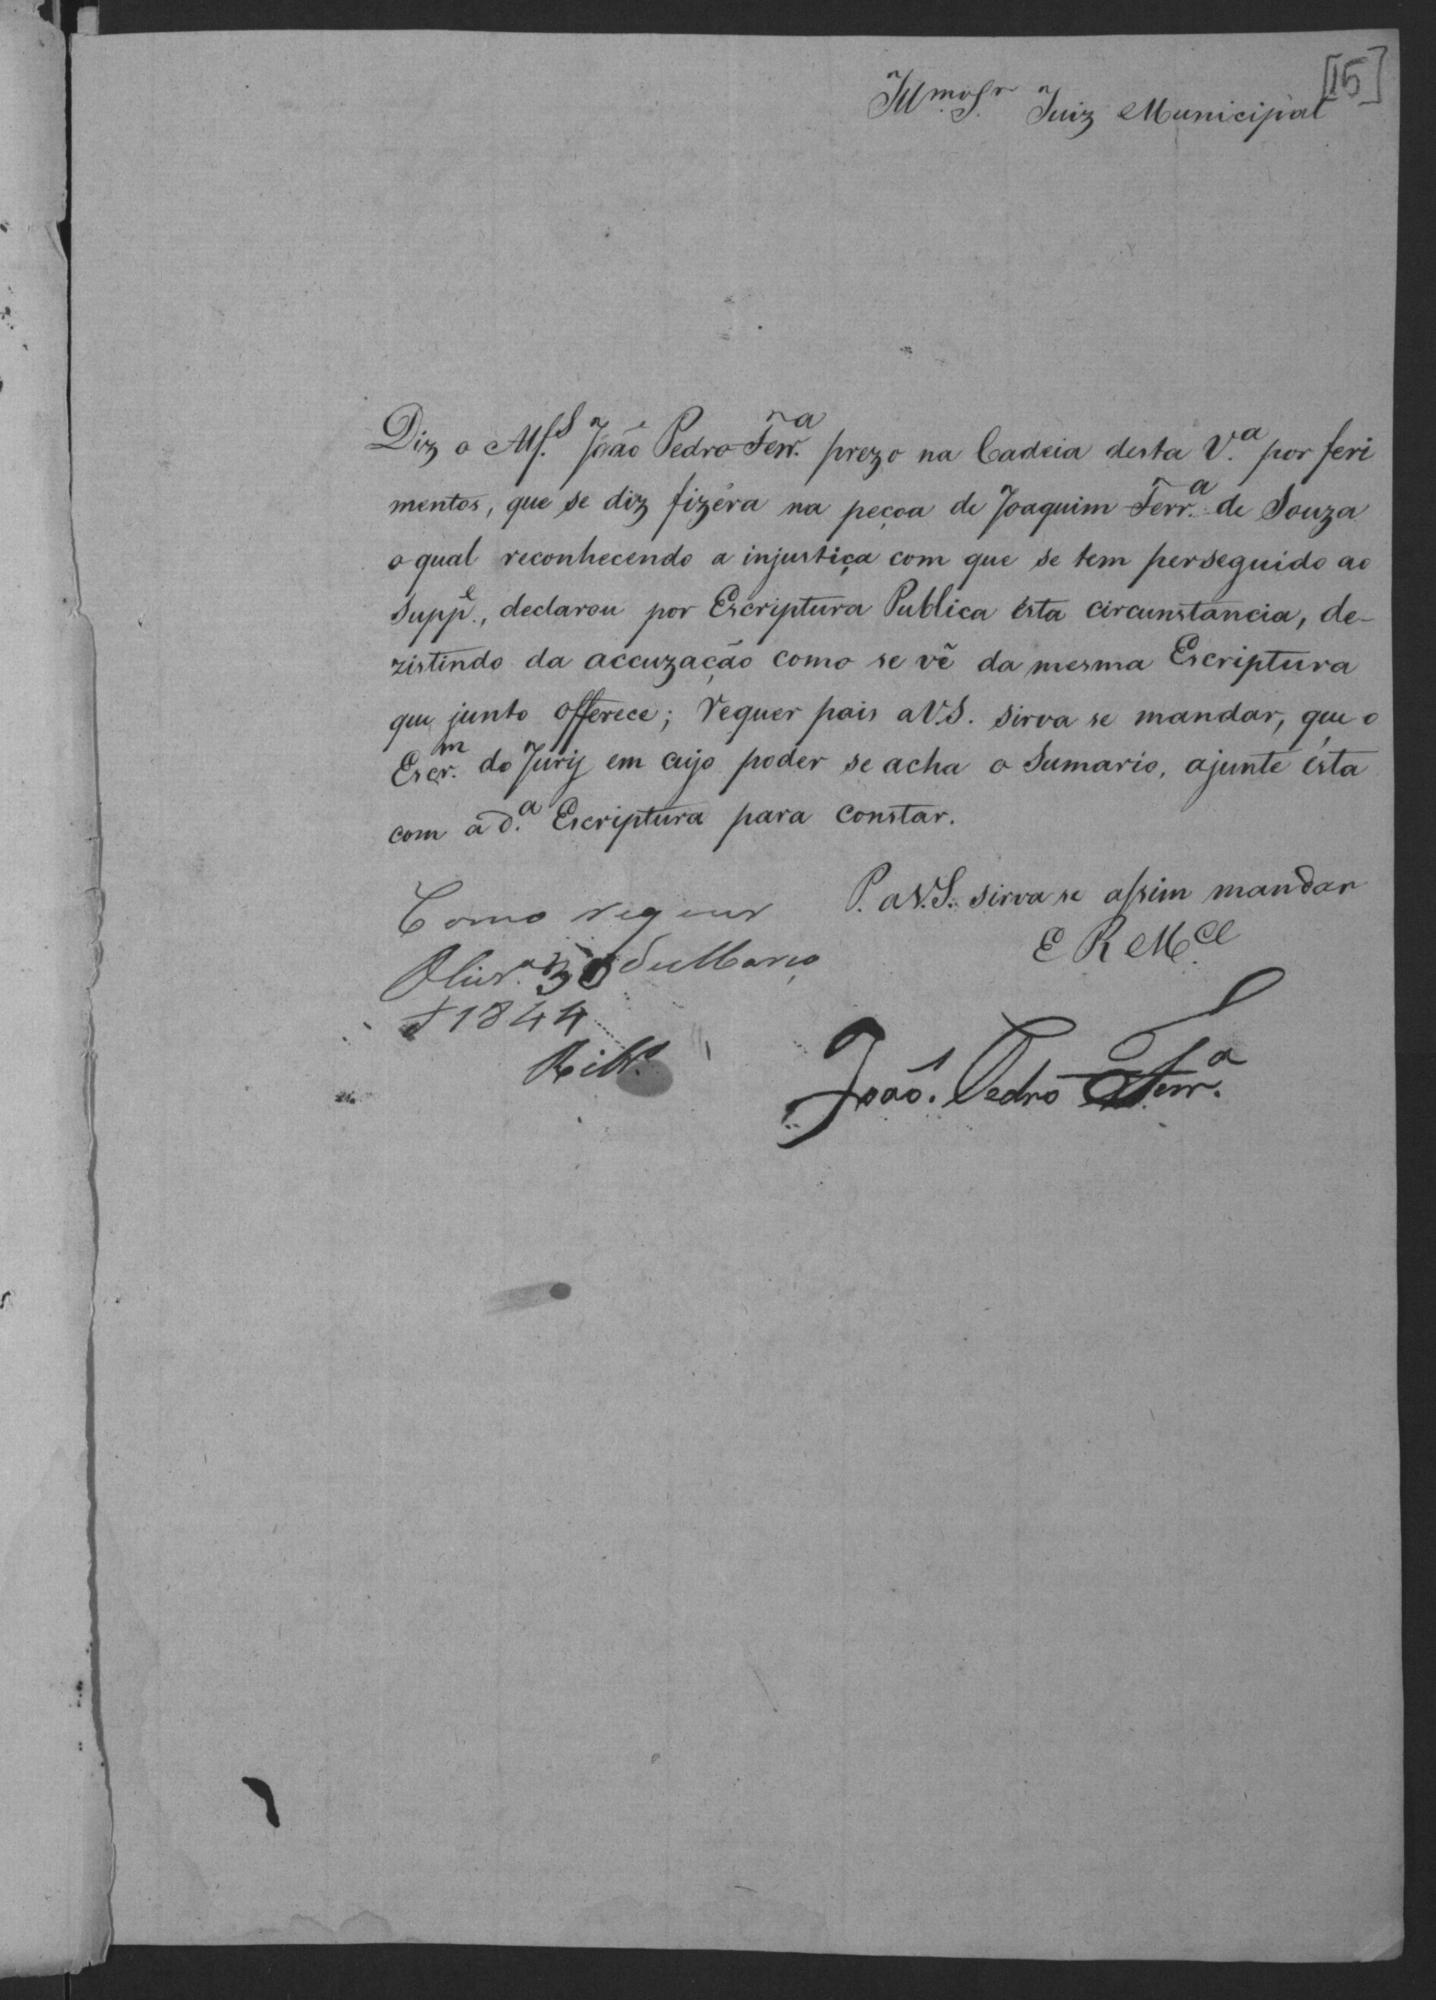 [15]
Illmo. Sr. Juiz Municipal
Diz o Alfs. João Pedro Ferra. prezo na Cadeia desta Va. por feri
mentos, que se diz fizéra na peçoa de Joaquim Ferra. de Souza
o qual reconhecendo a injustiça com que se tem perseguido ao
Suppe., declarou por Escriptura Publica ésta circunstancia, de-
zistindo da accuzação como se vê da mesma Escriptura
que junto offerece; requer pois a V.S. sirva se mandar, que o
Escrm. do Jury em cujo poder se acha o Sumario, ajunte ésta
com a da. Escriptura para constar.
P. a V.S. sirva se assim mandar
E R Mce.
Como requer
Olivra. 30 de Março
d 1844
Ribr.
João Pedro Ferra.